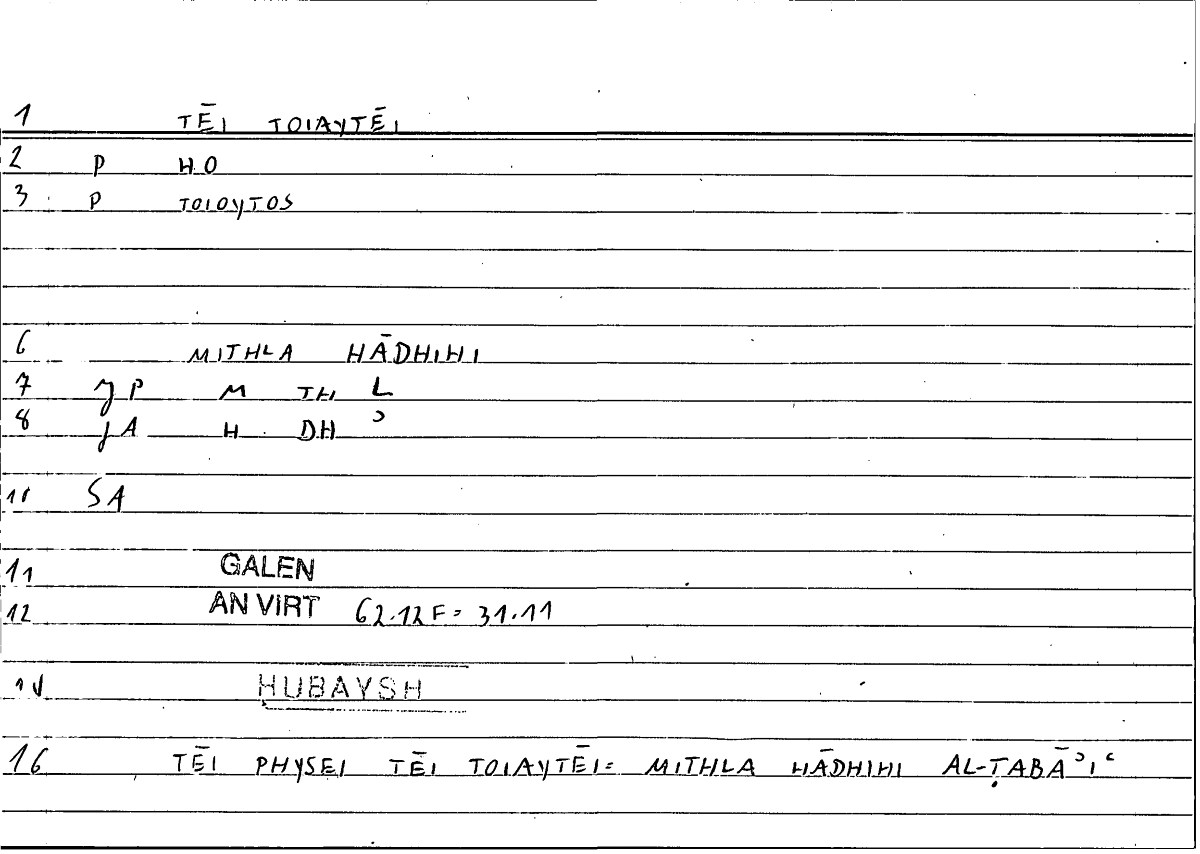 1 TĒI TOIAYTĒI
2 P HO
3 P TOIOYTOS
6 MITHLA HĀDHIHI
7 P M TH L
8 A H DH ʾ
10 SA
11 GALEN
12 AN VIRT 62.12 F = 31.11
14 HUBAYSH
16 TĒI PHYSEI TĒI TOIAYTĒI = MITHLA HĀDHIHI AL-ṬABĀʾIʿ